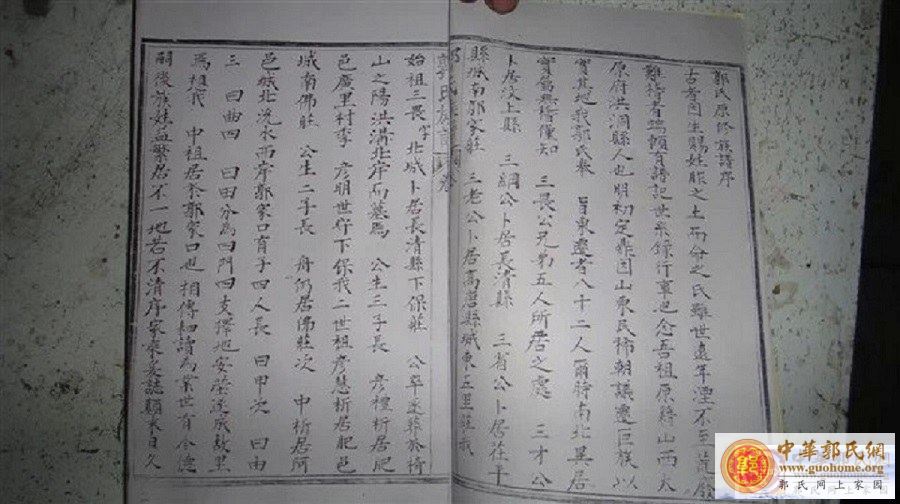 郭氏原修族譜序
古者因生賜姓胙之土而命之氏雖世遠年湮不至荒
難稽者端賴有譜記世系錄行重也念吾祖原籍山西太
原府洪洞縣人也明初定鼎因山東民稀朝議遷巨族以
實其地我郭氏奉 旨東遷者八十二人爾時南北里居
實難僅知 三畏公兄弟五人所居之處 三才公
卜居汶上縣 三綱公卜居長清縣 三省公卜居茌平
縣城南郭家莊 三老公卜居高唐縣城東五里莊我
始祖三畏字北城卜居長清縣下保莊 公卒遂葬於
山之陽洪溝北序而墓焉 公生三子長 彥禮析居肥
邑廣里村李 彥明世守下保我二世祖彥慧析居肥邑
城南佛莊 公生二子長 舟仍居佛莊次 中析居阿
邑城北洗水而序郭家口育子四人長 曰申次 曰由
三 曰曲四 曰田分為四門四支擇地安塋遂成故里
焉祖我 中祖居於郭家口也相傳耕讀為業世有令德
嗣後族姓益繁居不一地若不清序家乘妥誌類表日久
中華郭氏網
www.guohome.org
郭氏网上家园